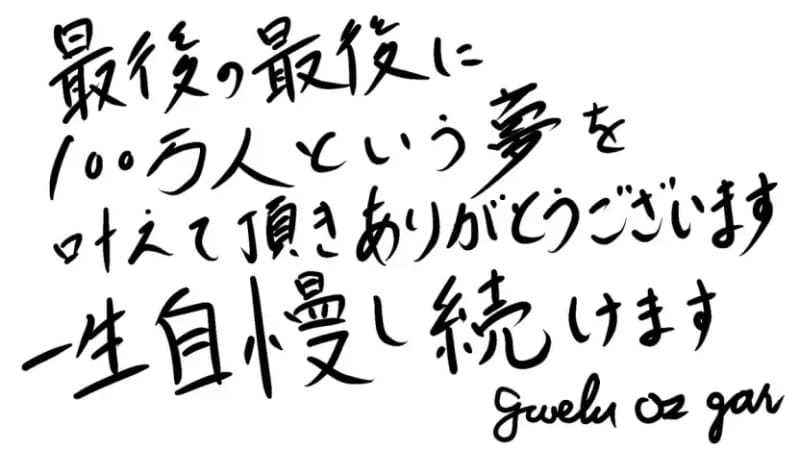 最後の最後に
100万人という夢を
叶えて頂きありがとうございます
一生自慢し続けます
Gwelu Oz gar